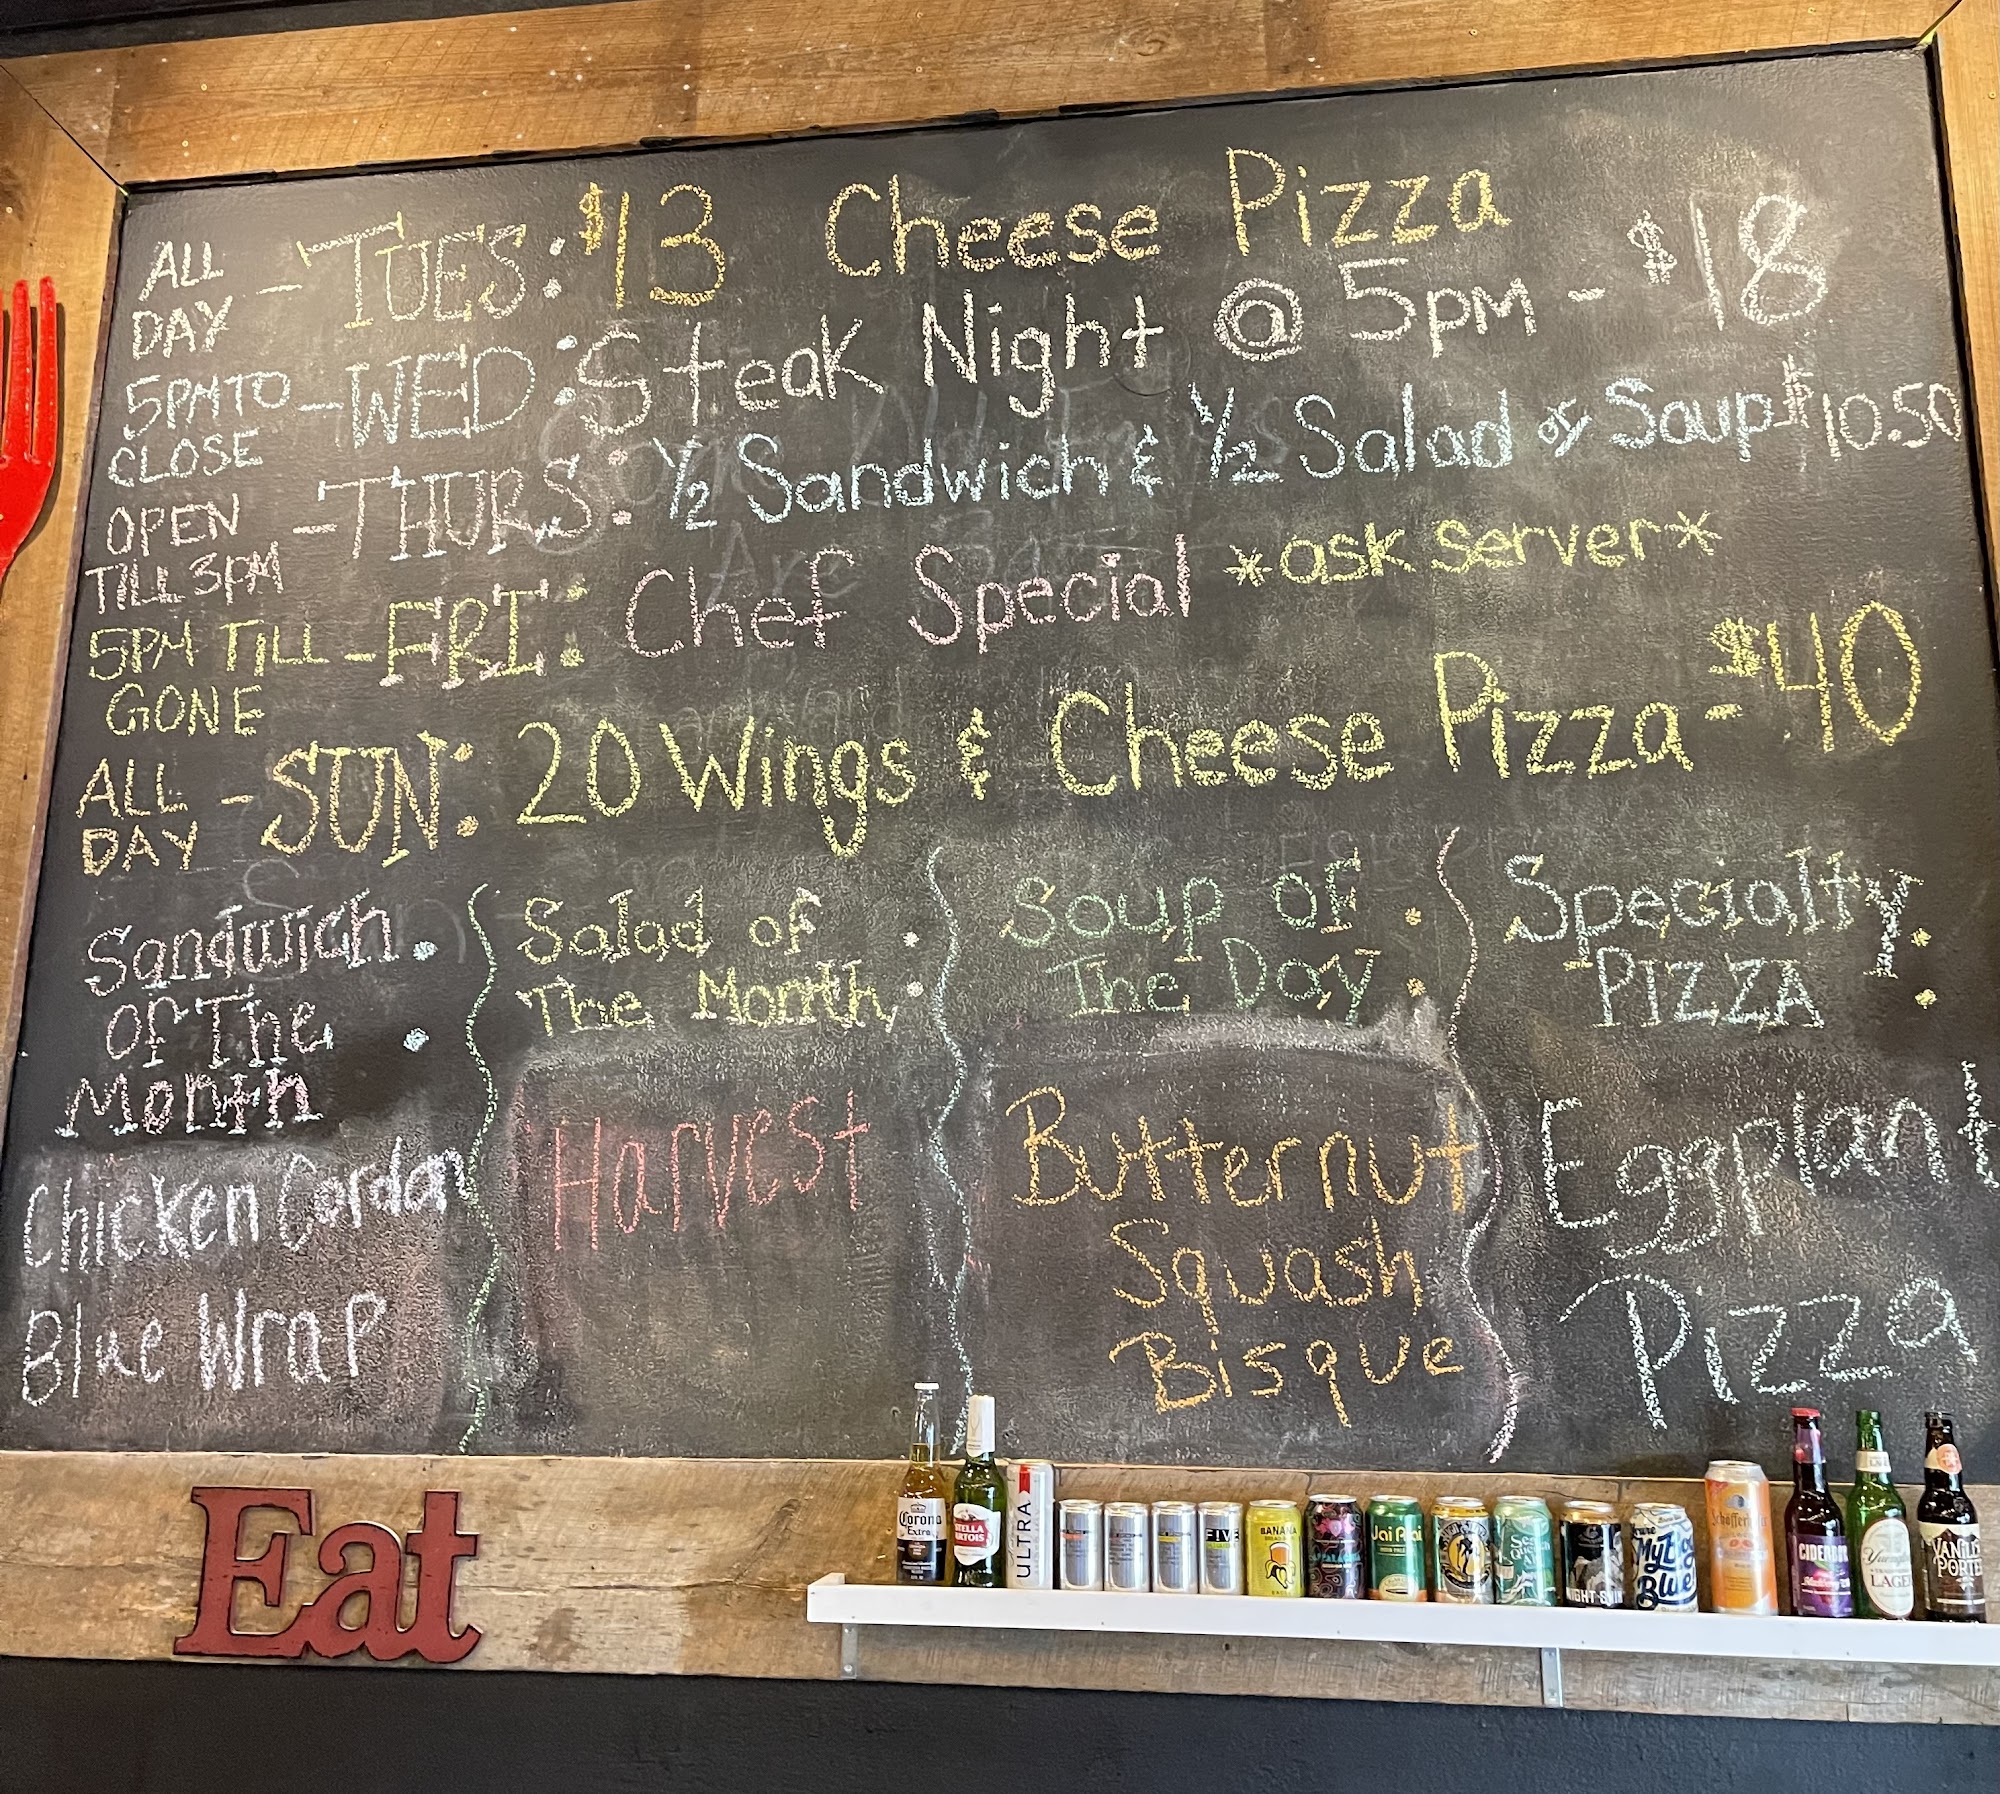 ALL DAY - TUES: $13 Cheese Pizza
5PM TO CLOSE - WED: Steak Night @ 5pm - $18
OPEN TILL 3PM - THURS: 1/2 Sandwich & 1/2 Salad or Soup $10.50
5PM TILL GONE - FRI: Chef Special *ask server*
ALL DAY - SUN: 20 Wings & Cheese Pizza - $40
Sandwich
Of The
Month :
Chicken Cordan
Blue Wrap
Salad of
The Month :
Harvest
Soup of
The Day :
Butternut
Squash
Bisque
Specialty
PIZZA :
Eggplant
Pizza
Eat
Corona
Extra
STELLA
ARTOIS
ULTRA
FIVE
BANANA
Jai Alai
Myt
Blue
Schöfferhofer
CIDERBOYS
Yuengling
LAGER
VANILLA
PORTER